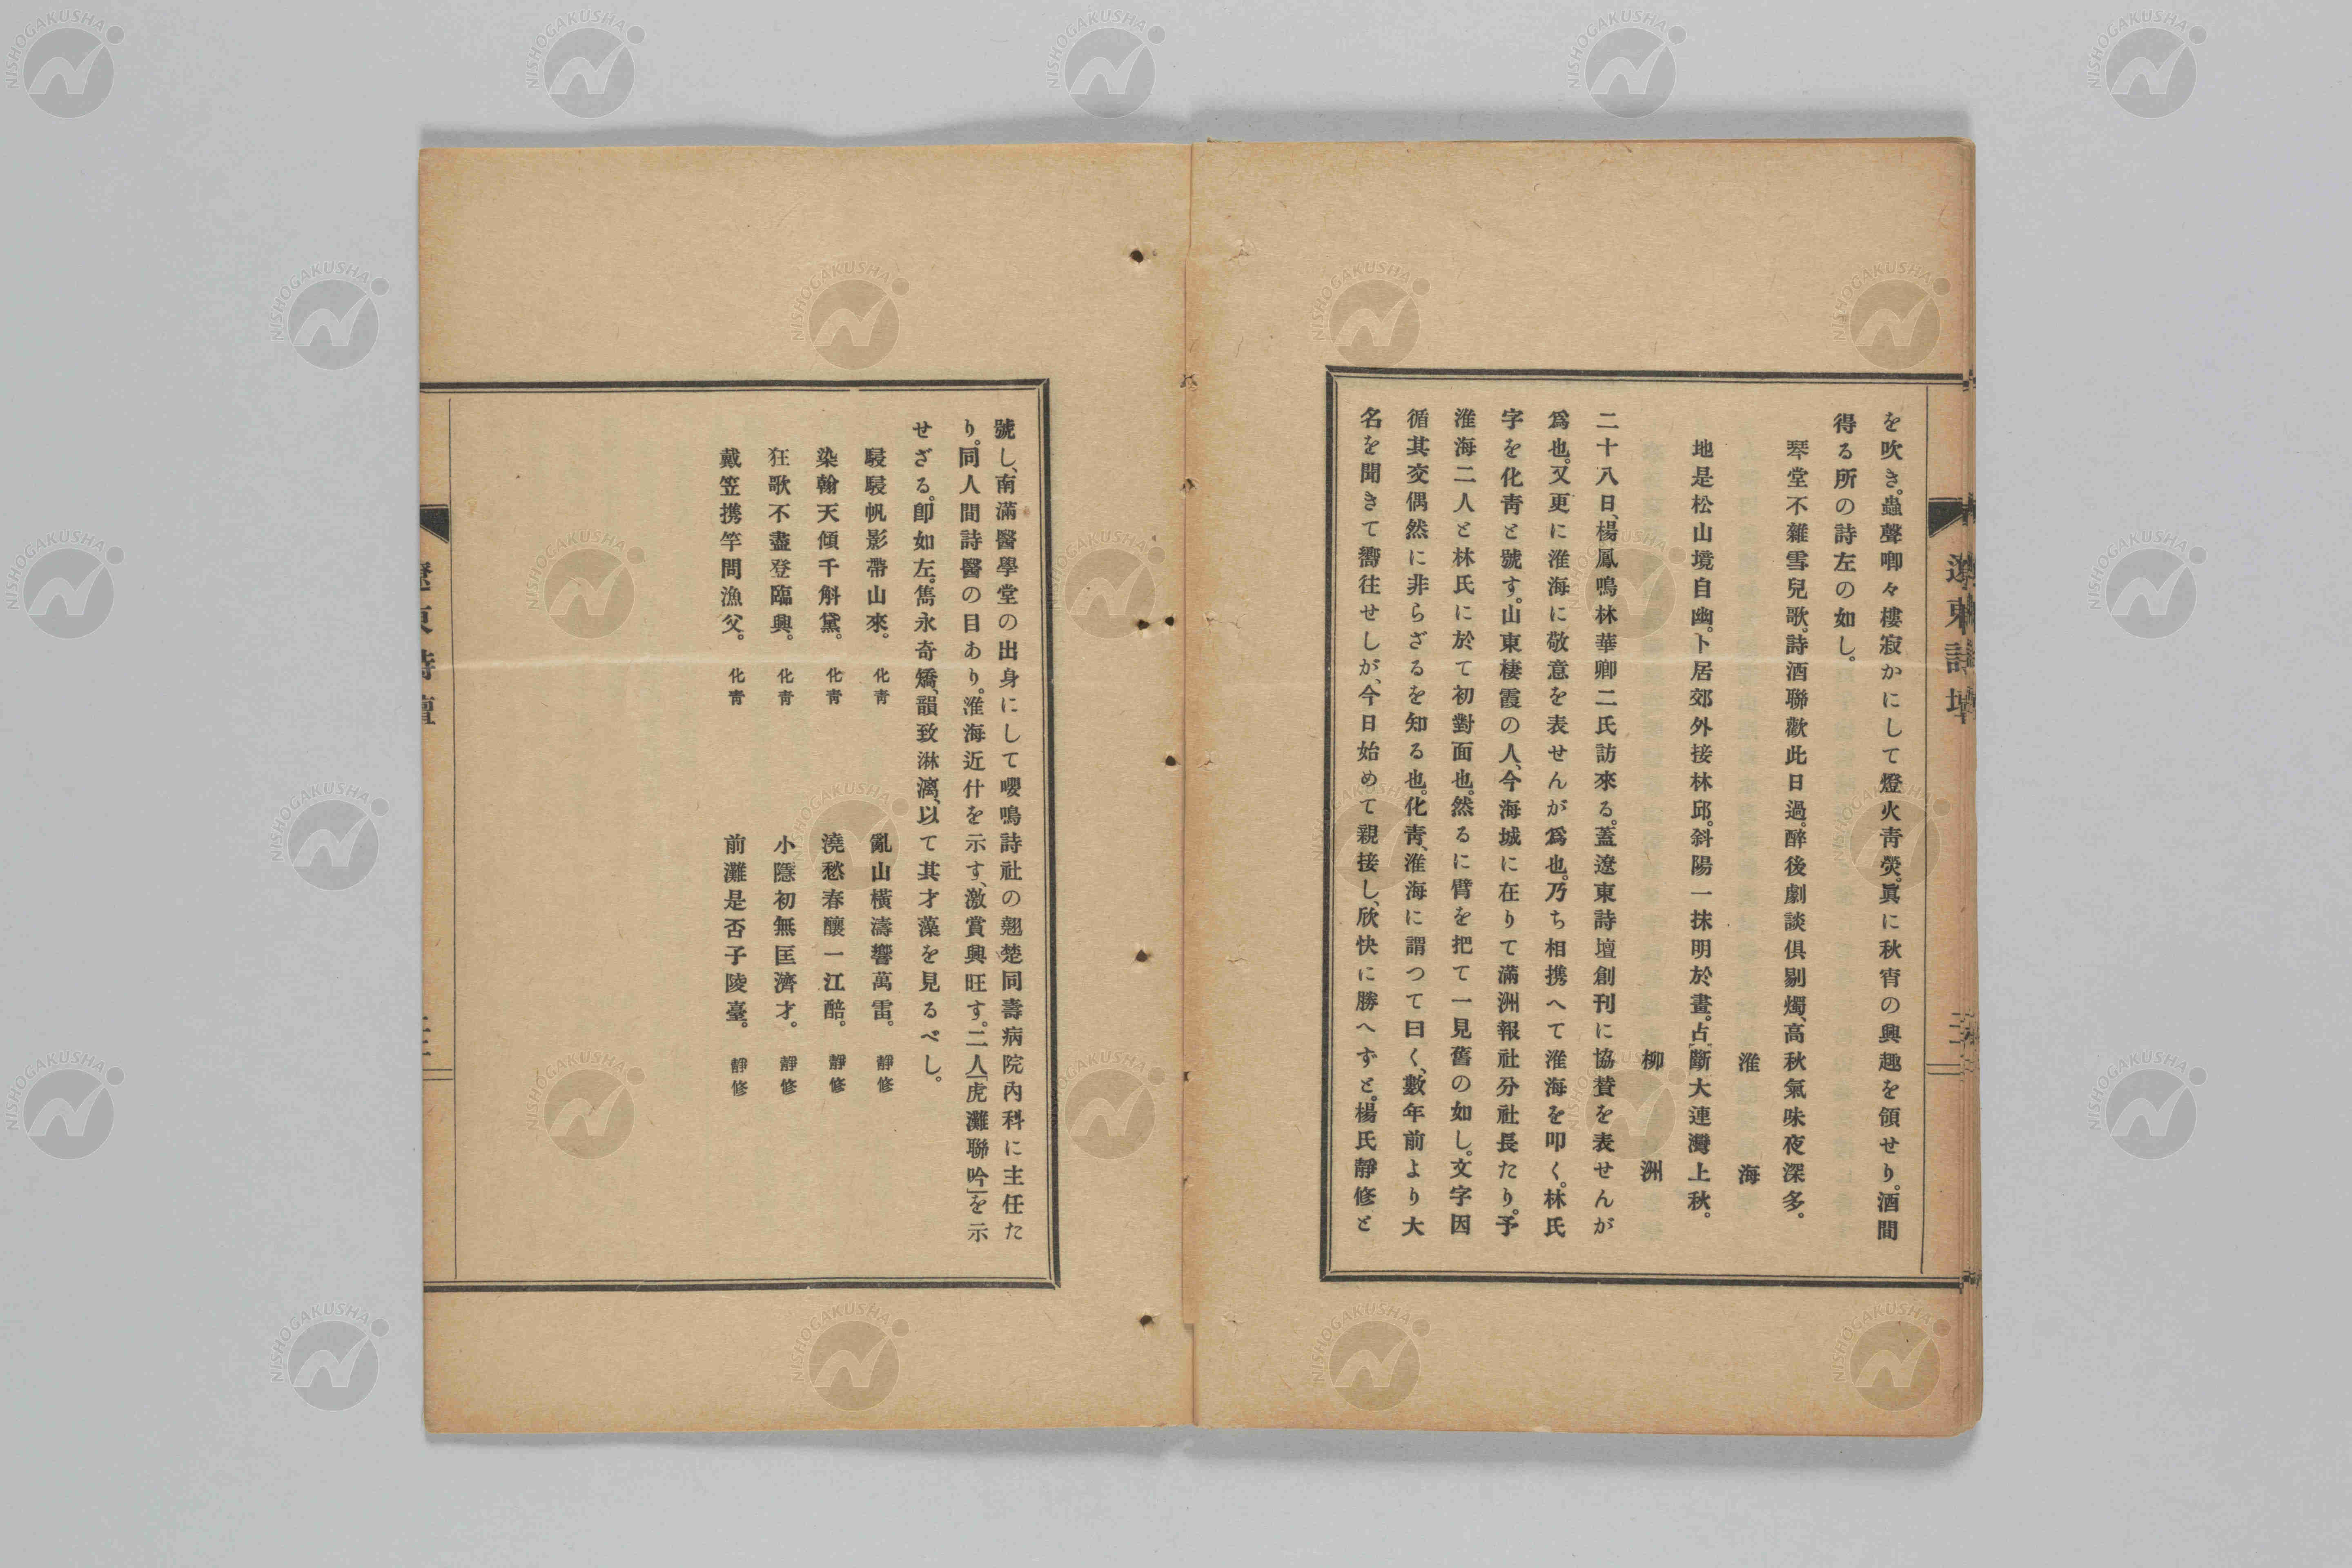 を吹き。蟲聲喞々樓寂かにして燈火青熒。眞に秋宵の興趣を領せり。酒間
得る所の詩左の如し。
琴堂不雜雪兒歌。詩酒聯歡此日過。醉後劇談倶剔燭、高秋氣味夜深多。
淮海
地是松山境自幽。卜居郊外接林邱。斜陽一抹明於畫。占斷大連灣上秋。
柳洲
二十八日、楊鳳鳴林華卿二氏訪來る。蓋遼東詩壇創刊に協贊を表せんが
爲也。又更に淮海に敬意を表せんが爲也。乃ち相携へて淮海を叩く。林氏
字を化靑と號す。山東棲霞の人、今海城に在りて滿洲報社分社長たり。予
淮海二人と林氏に於て初對面也。然るに臂を把て一見舊の如し。文字因
循其交偶然に非らざるを知る也。化靑、淮海に謂つて曰く、數年前より大
名を聞きて嚮往せしが、今日始めて親接し、欣快に勝へずと。楊氏靜修と
遼東詩壇
號し、南滿醫學堂の出身にして嚶鳴詩社の翹楚同壽病院內科に主任た
り。同人間詩醫の目あり。淮海近什を示す、激賞興旺す。二人「虎灘聯吟」を示
せざる。卽如左。雋永奇矯、韻致淋漓、以て其才藻を見るべし。
駸駸帆影帶山來。 化靑 亂山橫濤響萬雷。 靜修
染翰天傾千斛黛。 化靑 澆愁春釀一江醅。 靜修
狂歌不盡登臨興。 化靑 小隱初無匡濟才。 靜修
戴笠携竿問漁父。 化靑 前灘是否子陵臺。 靜修
遼東詩壇
NISHOGAKUSHA